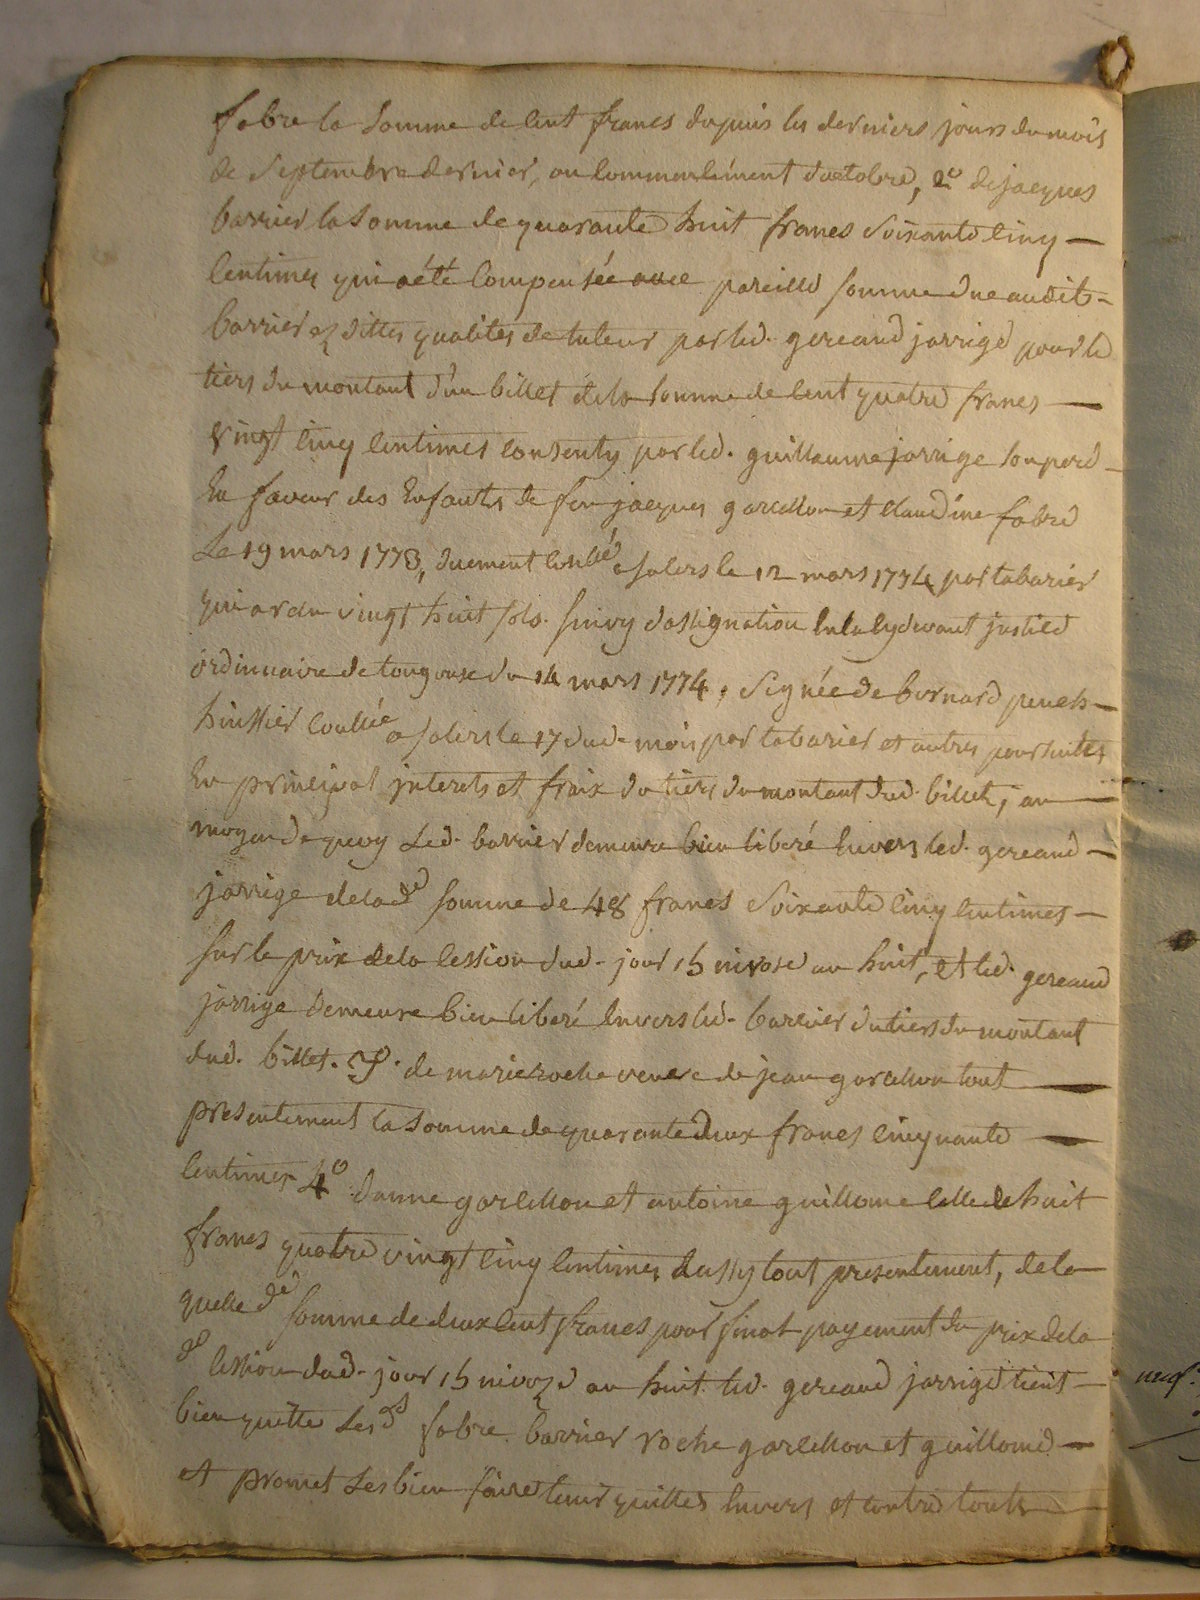 fabre la somme de cent francs depuis les derniers jours du mois
de septembre dernier, ou commencement d'octobre, 2º de jacques
barrier la somme de quarante huit francs soixante cinq —
centimes qui a été compensée avec pareille somme due audit -
barrier es dittes qualites de tuteur par led. gereaud jarrige pour le
tiers du montant d'un billet de la somme de cent quatre francs —
vingt cinq centimes consenty par led. guillaume jarrige son pere -
en faveur des enfants de feu jacques garcellon et claudine fabre
Le 19 mars 1773, duement collé a salers le 12 mars 1774 par tabarier
qui a reçu vingt huit sols. suivy d'assignation en la cy devant justice
ordinnaire de tougouse du 14 mars 1774, signée de bernard peuch —
huissier collée a salers le 17 dud. mois par tabarier et autres poursuites
en principal interets et fraix du tiers du montant dud. billet, au —
moyen de quoy Led. barrier demeure bien liberé envers led. gereaud —
jarrige de lade somme de 48 francs soixante cinq centimes —
sur le prix de la cession dud. jour 15 nivose an huit, et led. gereaud
jarrige demeure bien liberé envers led. barrier du tiers du montant
dud. billet. 3º. de marie roche veuve de jean garcellon tout —
presentement la somme de quarante deux francs cinquante —
centimes 4º d'anne garcellon et antoine guillome celle de huit
francs quatre vingt cinq centimes aussy tout presentement, de la
quelle de somme de deux cent francs pour final payement du prix de la
de cession dud. jour 15 nivoze an huit. led. gereaud jarrige tient —
bien quitte Lesds fabre barrier roche garcellon et guillome —
et promet Les bien faire tenir quittes envers et contre touts —